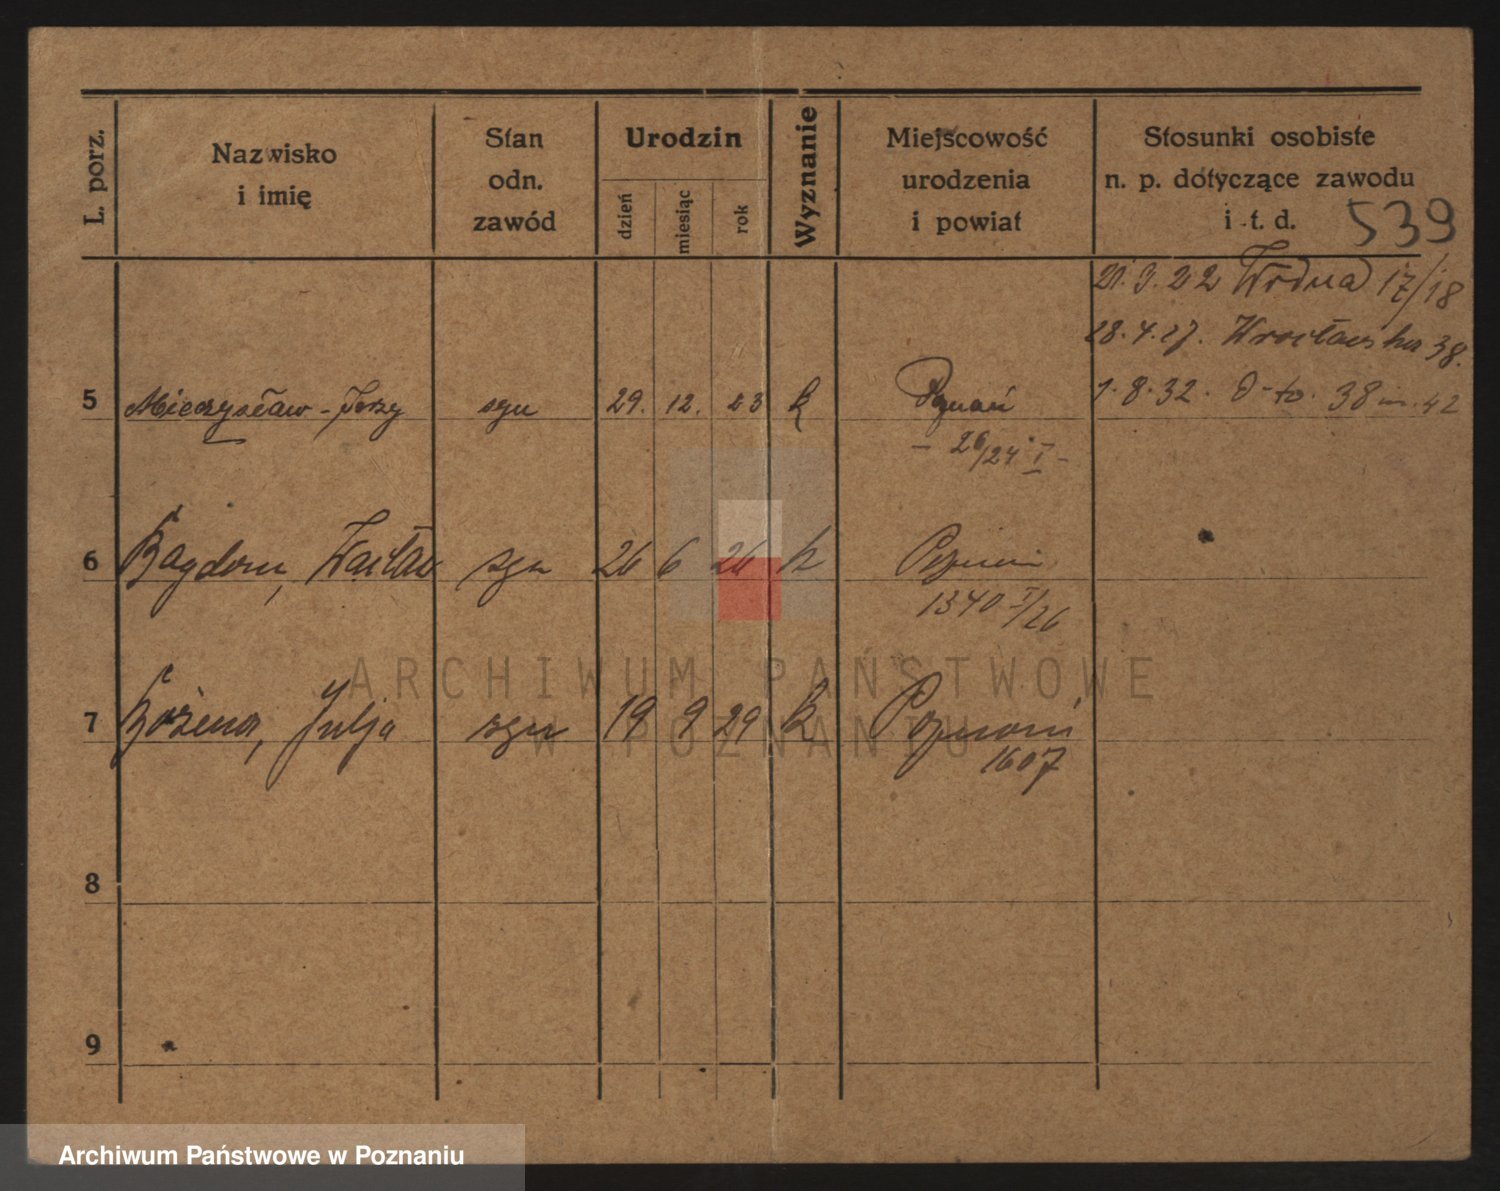 L. porz.
Nazwisko
i imię
Stan
odn.
zawód
Urodzin
dzień
miesiąc
rok
Wyznanie
Miejscowość
urodzenia
i powiat
Stosunki osobiste
n. p. dotyczące zawodu
i t. d.
539
21.9.22 Wodna 17/18
28.4.27. Wrocławska 38.
5 Mieczysław-Jerzy syn 29. 12. 23 k Poznań 1.8.32. d-to. 38 m. 42
- 26/24 I -
6 Wacław syn 26 6 26 k Poznań
1340 I/26
7 Bożena, Julja 19 9 29 k Poznań
1607
8
9
ARCHIWUM PAŃSTWOWE
W POZNANIU
Archiwum Państwowe w Poznaniu